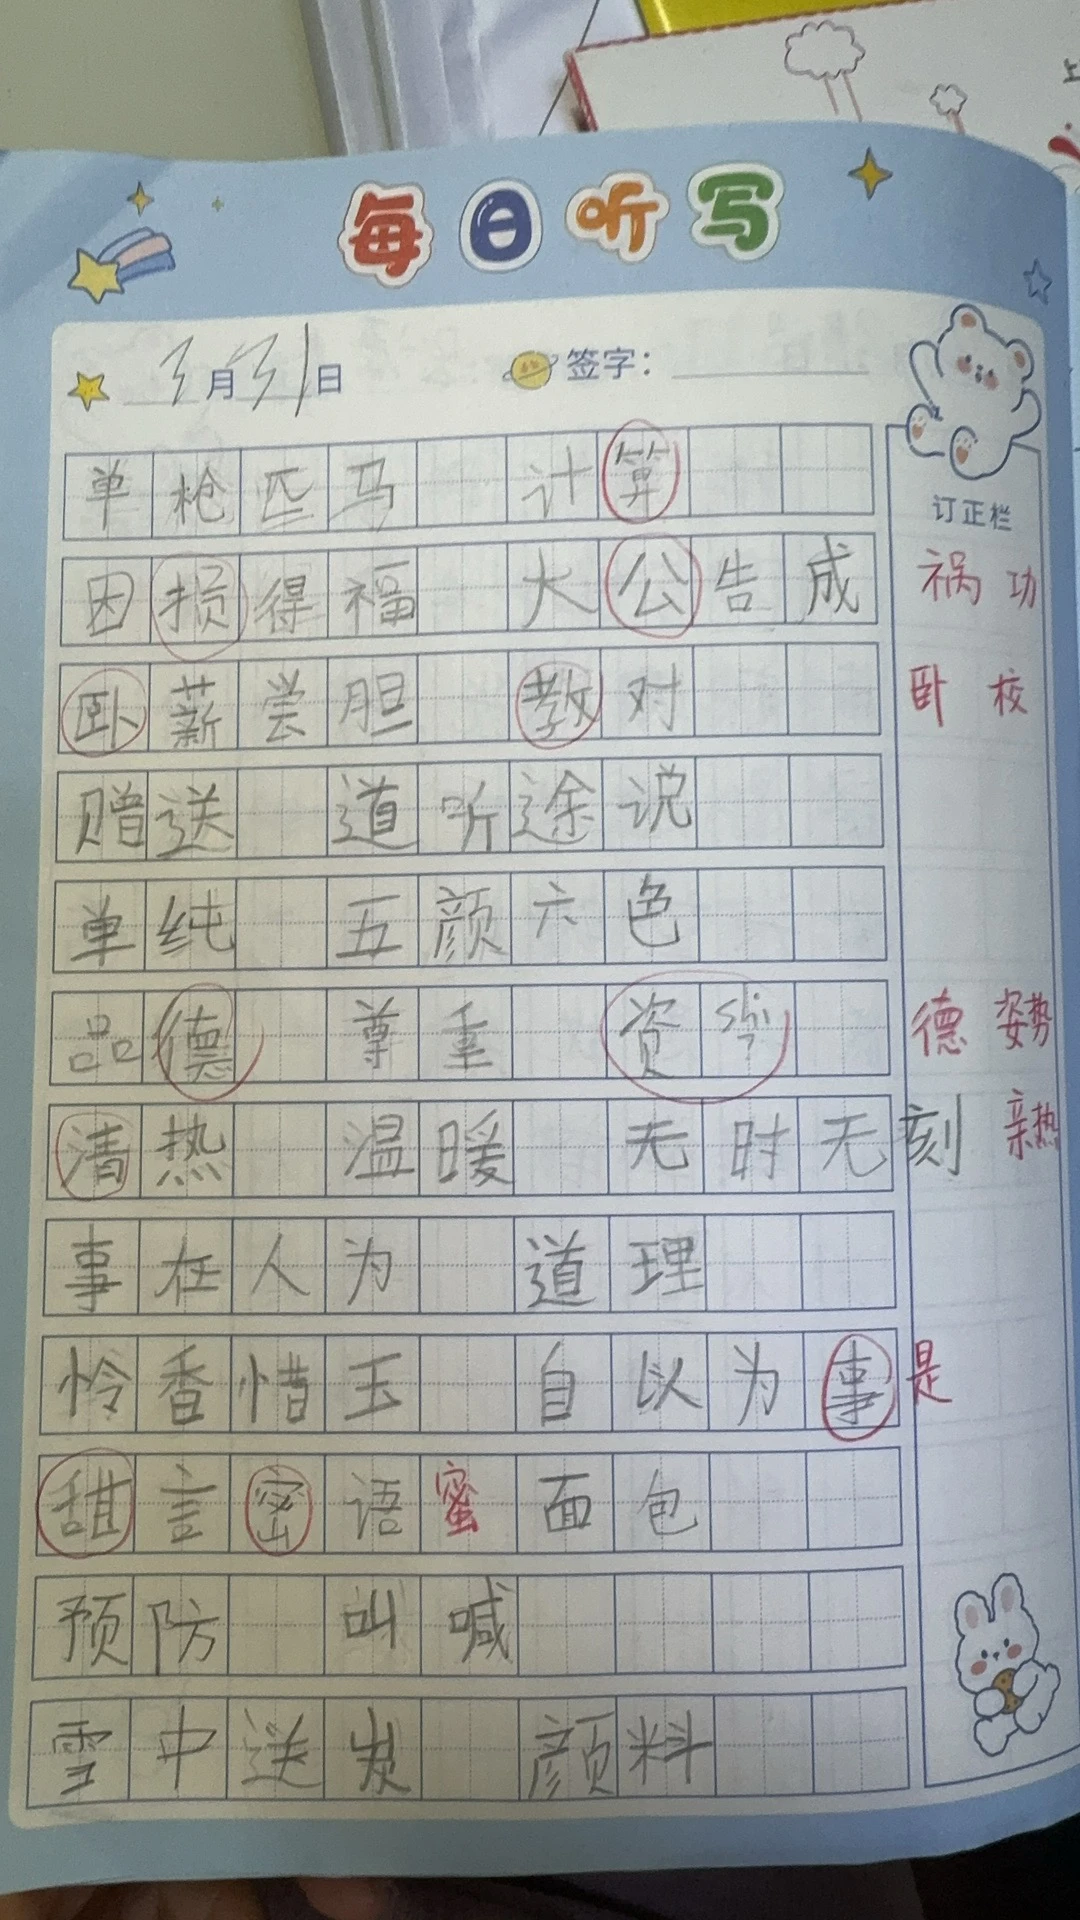 上
每日听写
3月31日 签字：
订正栏
单枪匹马 计算
因损得福 大公告成 祸 功
卧薪尝胆 教对 卧 校
赠送 道听途说
单纯 五颜六色
品德 尊重 资shi 德 姿势
清热 温暖 无时无刻 亲热
事在人为 道理
怜香惜玉 自以为事 是
甜言密语 蜜 面包
预防 叫喊
雪中送炭 颜料